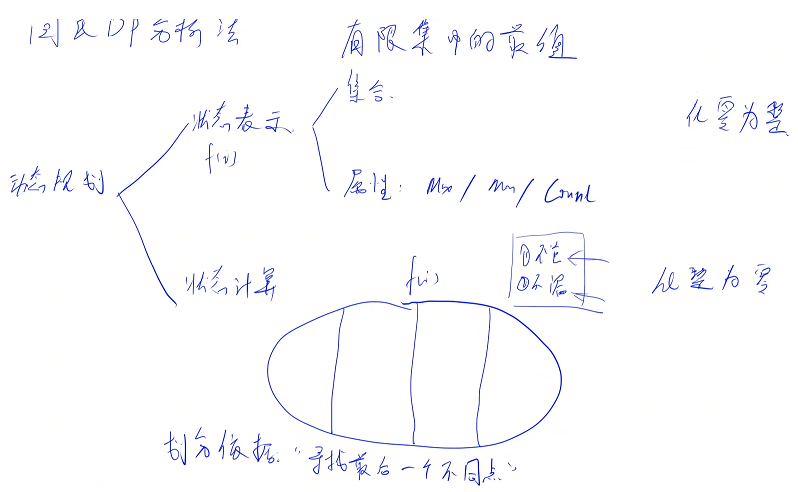 闫氏DP分析法 有限集中的最值
集合
状态表示 化零为整
f(i)
动态规划 属性: Max/Min/Count
①不重
状态计算 f(i) ②不漏 化整为零
划分依据: "寻找最后一个不同点"